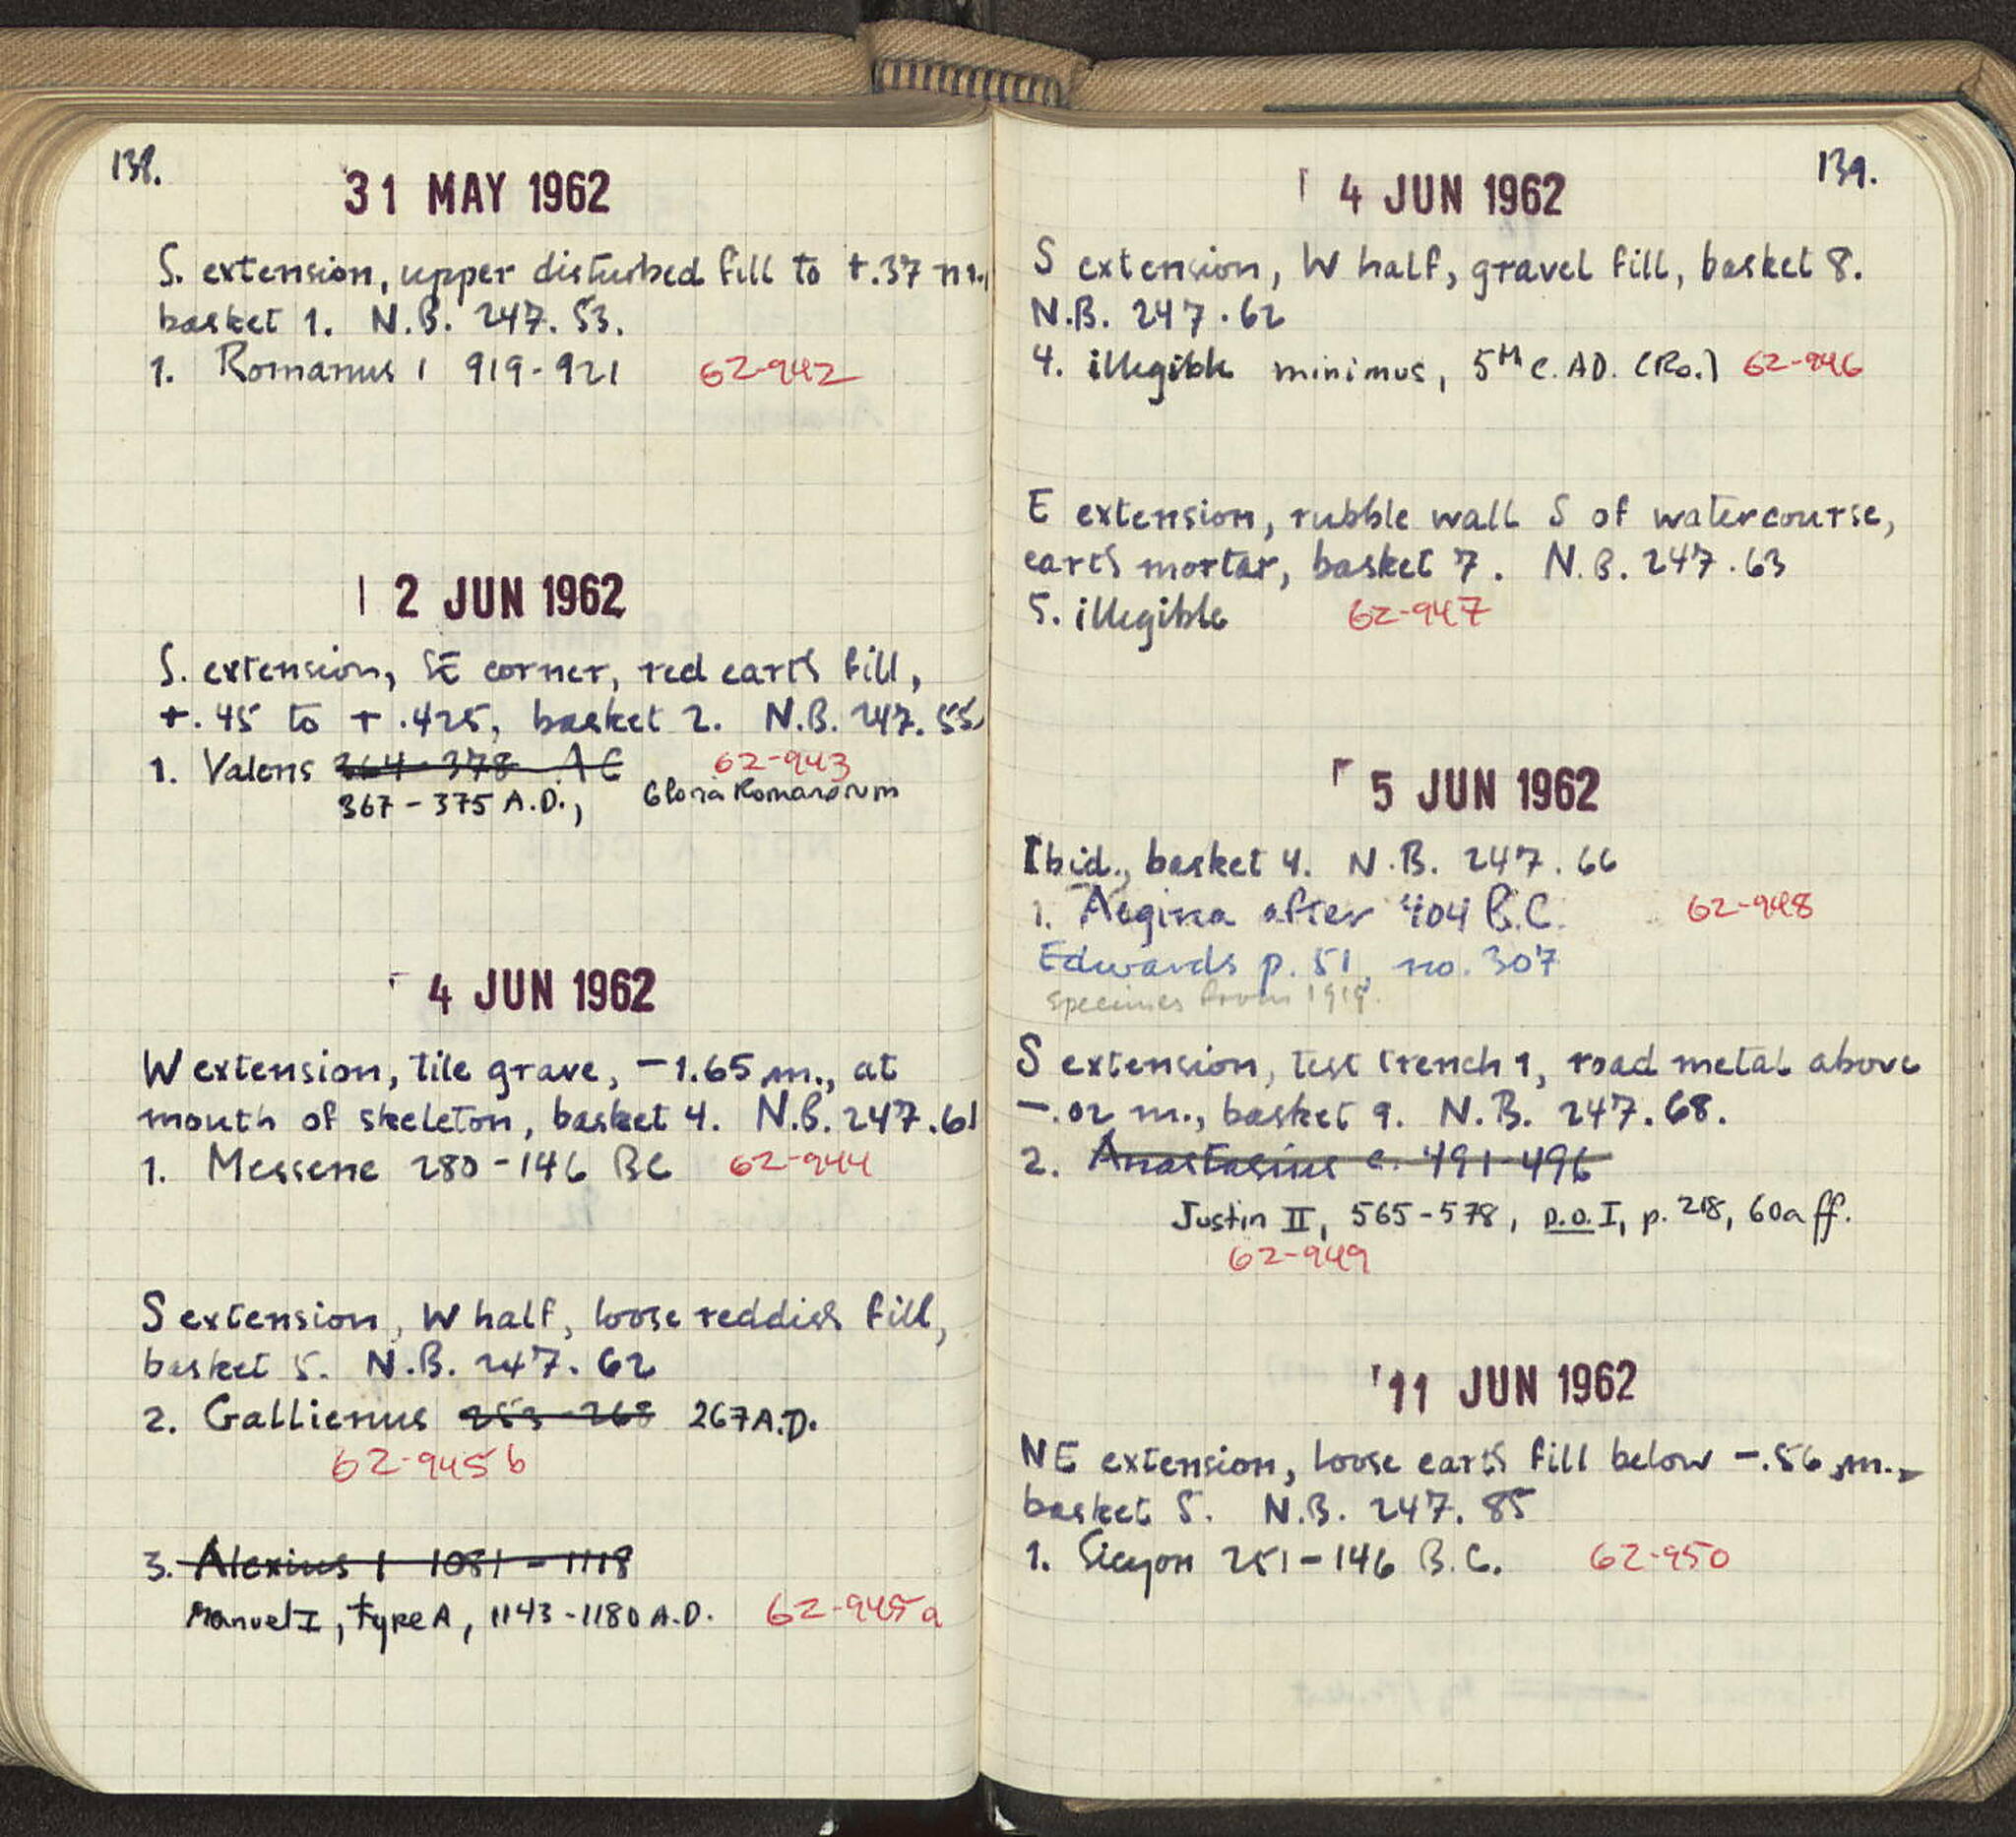 138.
31 MAY 1962
S. extension, upper disturbed fill to +.37 m.,
basket 1. N.B. 247.53.
1. Romanus I 919-921 62-942
2 JUN 1962
S. extension, SE corner, red earth fill,
+.45 to +.425, basket 2. N.B. 247.55
1. Valens 364-378 AC 62-943
367-375 A.D., Gloria Romanorum
4 JUN 1962
W extension, tile grave, -1.65 m., at
mouth of skeleton, basket 4. N.B. 247.61
1. Messene 280-146 BC 62-944
S extension, W half, loose reddish fill,
basket 5. N.B. 247.62
2. Gallienus 253-268 267 A.D.
62-945b
3. Alexius I 1081-1118
Manuel I, type A, 1143-1180 A.D. 62-945a
139.
4 JUN 1962
S extension, W half, gravel fill, basket 8.
N.B. 247.62
4. illegible minimus, 5th c. AD. (Ro.) 62-946
E extension, rubble wall S of watercourse,
earth mortar, basket 7. N.B. 247.63
5. illegible 62-947
5 JUN 1962
Ibid., basket 4. N.B. 247.66
1. Aegina after 404 B.C. 62-948
Edwards p. 51, no. 307
specimes from 1919.
S extension, test trench 1, road metal above
-.02 m., basket 9. N.B. 247.68.
2. Anastasius c. 491-496
Justin II, 565-578, D.O. I, p. 218, 60a ff.
62-949
11 JUN 1962
NE extension, loose earth fill below -.56 m.,
basket 5. N.B. 247.85
1. Sicyon 251-146 B.C. 62-950